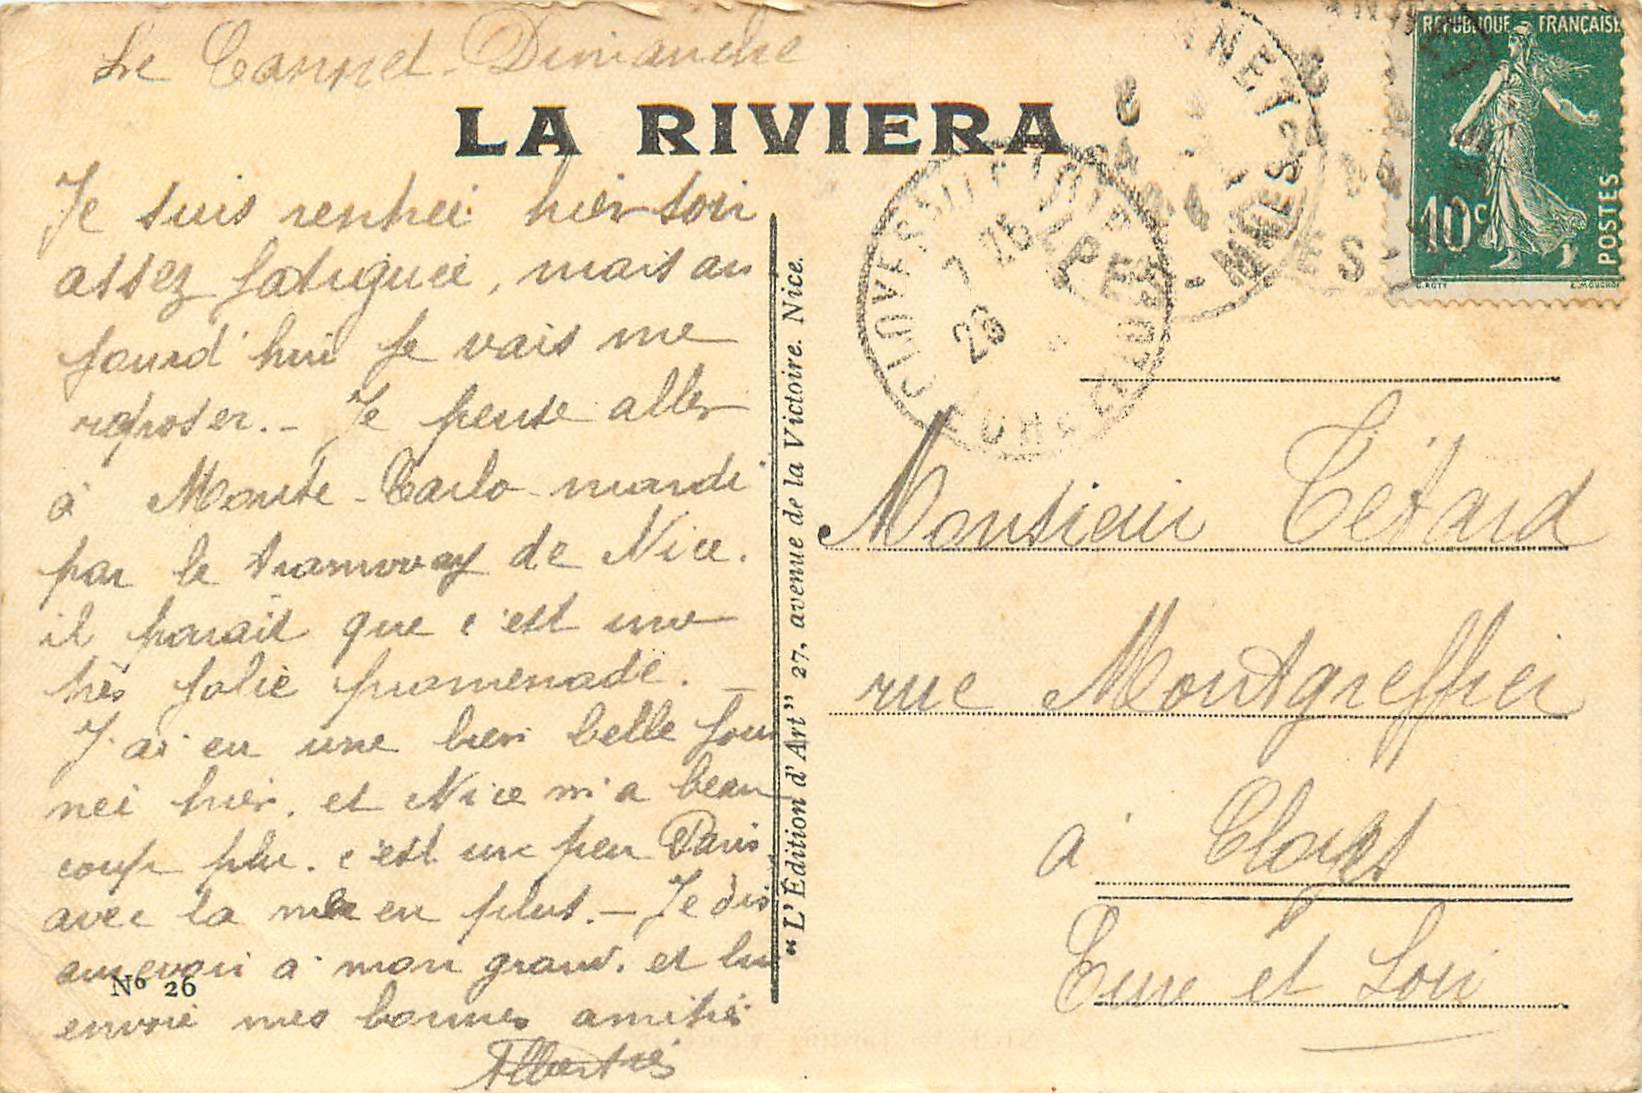 Le Cannet - Dimanche
LA RIVIERA
Je suis rentrée hier soir
assez fatiguée, mais au
jourd'hui je vais me
reposer. - Je pense aller
à Monte-Carlo mardi
par le tramway de Nice.
il parait que c'est une
très jolie promenade. -
J'ai eu une bien belle jour
née hier, et Nice m'a beau
coup plu. c'est un peu Paris
avec la mer en plus. - Je dis
au revoir à mon grand. et lui
envoie mes bonnes amitiés
"L'Édition d'Art" 27, avenue de la Victoire. Nice.
Nº 26
RÉPUBLIQUE FRANÇAISE
10c
POSTES
Monsieur Tétard
rue Montgreffier
à Cloyes
Eure et Loir